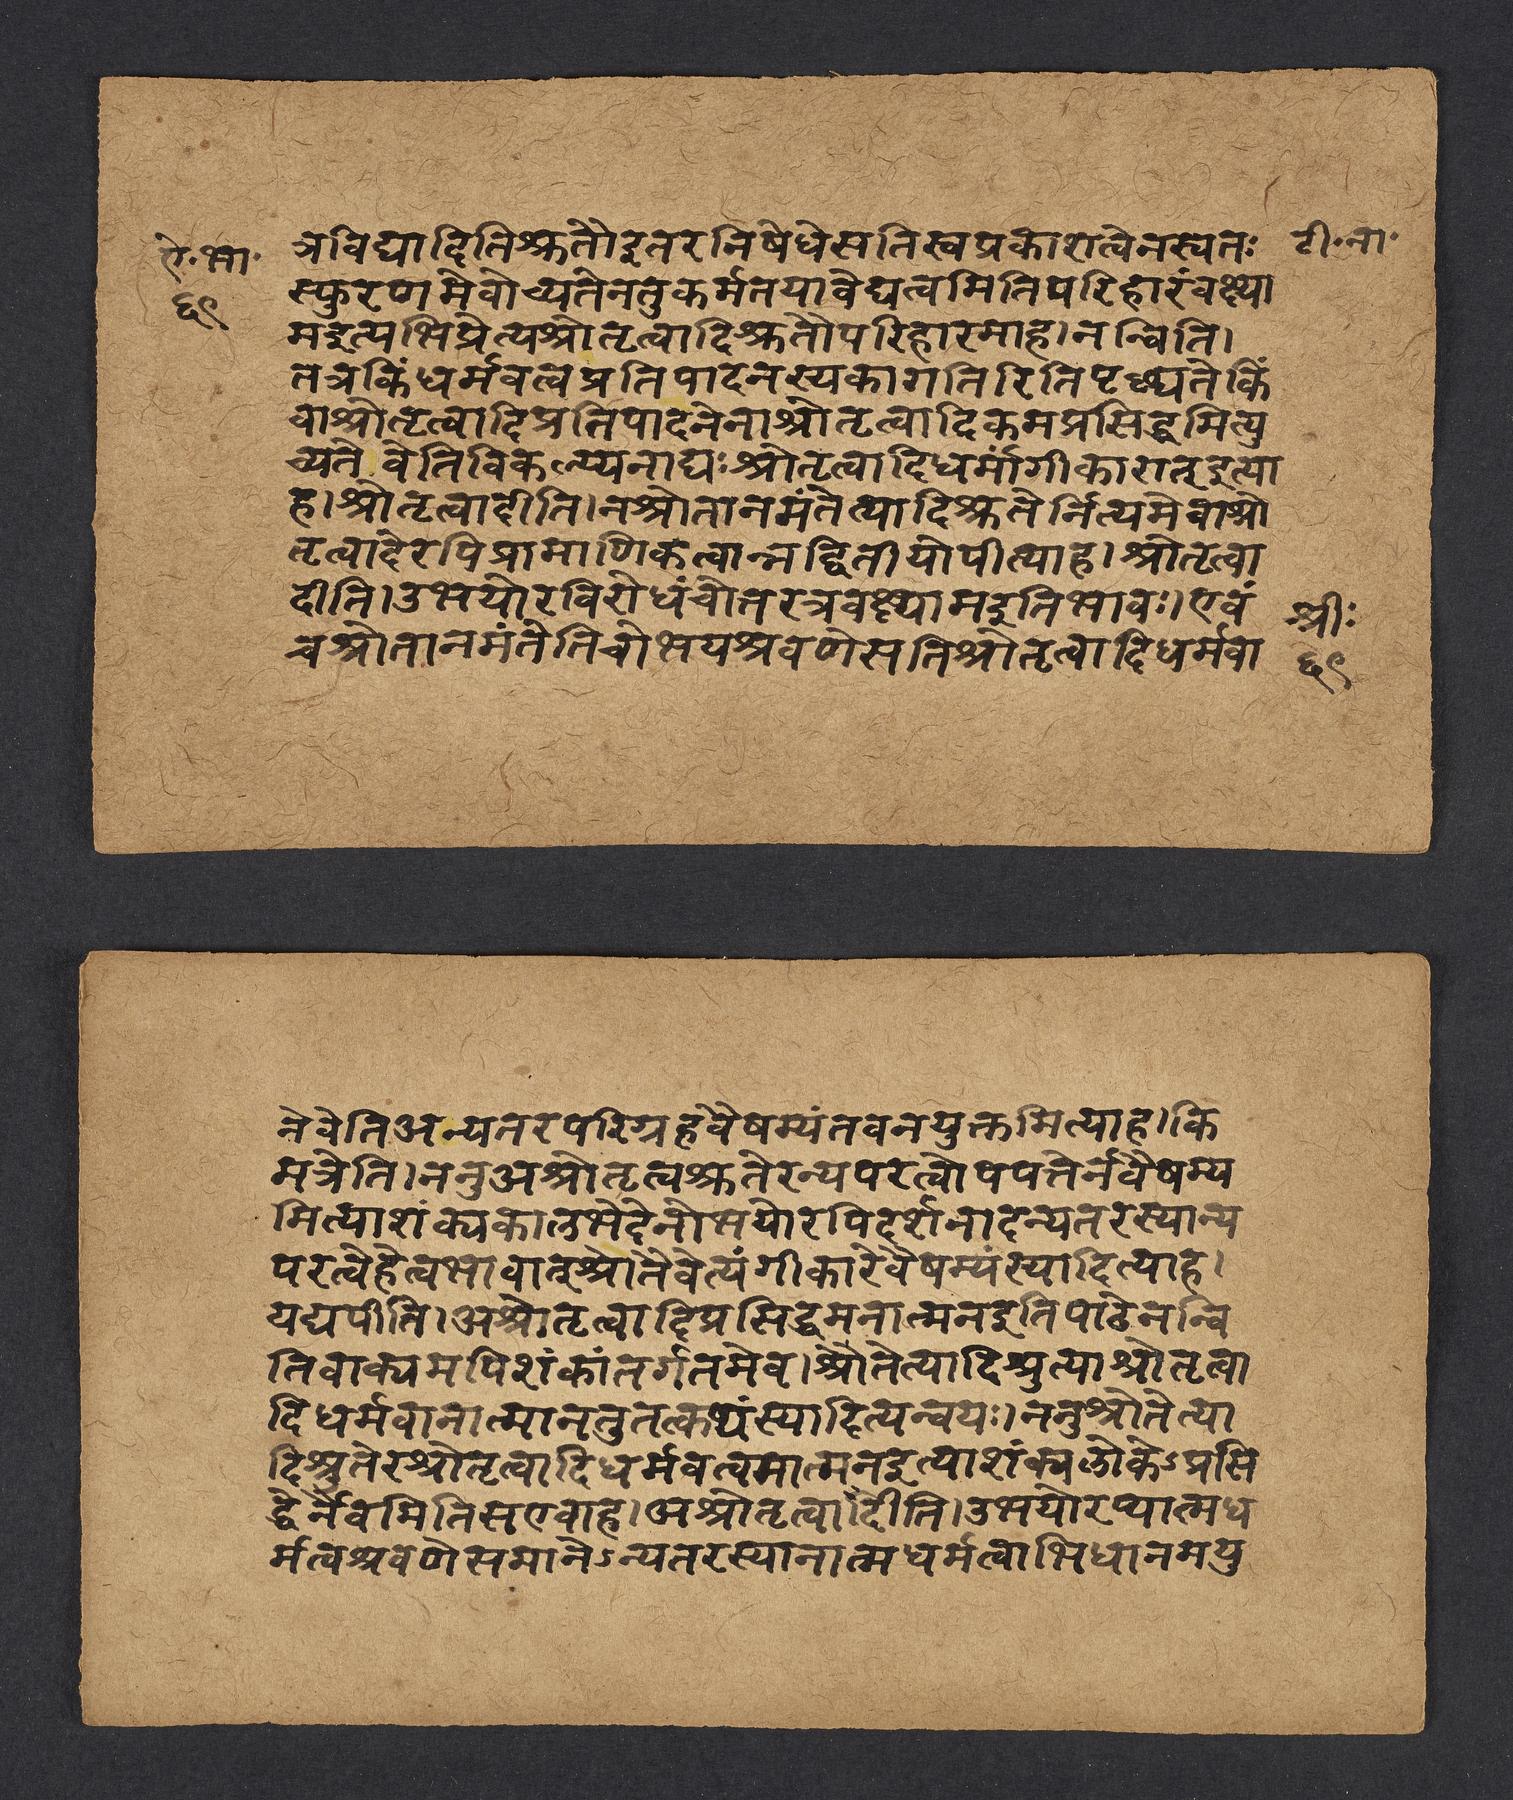 ऐ॰भा॰
६९
टी॰ना॰
त्रेविद्यादितिश्रुतौइतरनिषेधेसतिस्वप्रकाशत्वेनस्वतः
स्फुरणमेवोच्यतेनतुकर्मतयावेद्यत्वमितिपरिहारंवक्ष्या
मइत्यभिप्रेत्यश्रोतृत्वादिश्रुतौपरिहारमाह।नन्विति।
तत्रकिंधर्मवत्वप्रतिपादनस्यकागतिरितिपृच्छ्यतेकिं
वाश्रोतृत्वादिप्रतिपादनेनाश्रोतृत्वादिकमप्रसिद्धमित्यु
च्यतेवेतिविकल्प्यनाद्यःश्रोतृत्वादिधर्मांगीकारात्इत्या
ह।श्रोतृत्वादीति।नश्रोतानमंतेत्यादिश्रुतेर्नित्यमेवाश्रो
तृत्वादेरपिप्रामाणिकत्वान्नद्वितीयोपीत्याह।श्रोतृत्वा
दीति।उभयोरविरोधंचोत्तरत्रवक्ष्यामइतिभावः।एवं
चश्रोतानमंतेतिचोभयश्रवणेसतिश्रोतृत्वादिधर्मवा
श्रीः
६९
नेवेतिअन्यतरपरिग्रहेवैषम्यंतवनयुक्तमित्याह।कि
मत्रेति।ननुअश्रोतृत्वश्रुतेरन्यपरत्वोपपत्तेर्नवैषम्य
मित्याशंक्यकालभेदेनोभयोरपिदर्शनादन्यतरस्यान्य
परत्वेहेत्वभावात्श्रोतैवेत्यंगीकारेवैषम्यंस्यादित्याह।
यद्यपीति।अश्रोतृत्वादिप्रसिद्धमनात्मनइतिपाठेनन्वि
तिवाक्यमपिशंकांतर्गतमेव।श्रोतेत्यादिश्रुत्याश्रोतृत्वा
दिधर्मवानात्मानतुतत्कथंस्यादित्यन्वयः।ननुश्रोतेत्या
दिश्रुतेरश्रोतृत्वादिधर्मवत्वमात्मनइत्याशंक्यलोकेऽप्रसि
द्धेर्नैवमितिसएवाह।अश्रोतृत्वादीति।उभयोरप्यात्मध
र्मत्वश्रवणेसमानेऽन्यतरस्यानात्मधर्मत्वाभिधानमयु